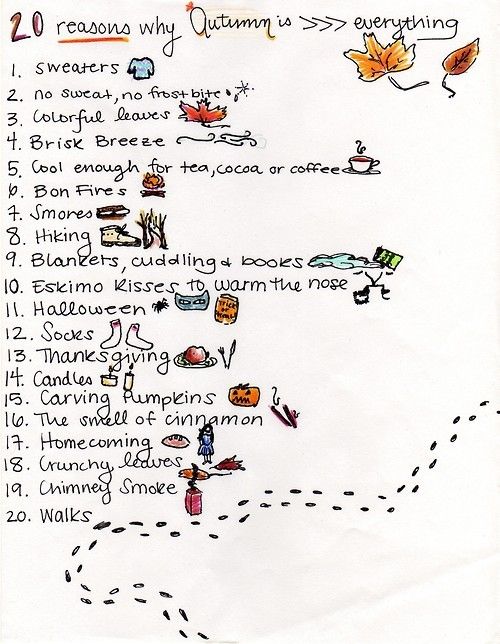 20 reasons why Autumn is >>> everything
1. Sweaters
2. no sweat, no frost bite
3. Colorful leaves
4. Brisk Breeze
5. Cool enough for tea, cocoa or coffee
6. Bon Fires
7. Smores
8. Hiking
9. Blankets, cuddling & books
10. Eskimo Kisses to warm the nose
11. Halloween
TRICK or TREAT
12. Socks
13. Thanksgiving
14. Candles
15. Carving Pumpkins
16. The smell of cinnamon
17. Homecoming
18. Crunchy leaves
19. Chimney Smoke
20. Walks